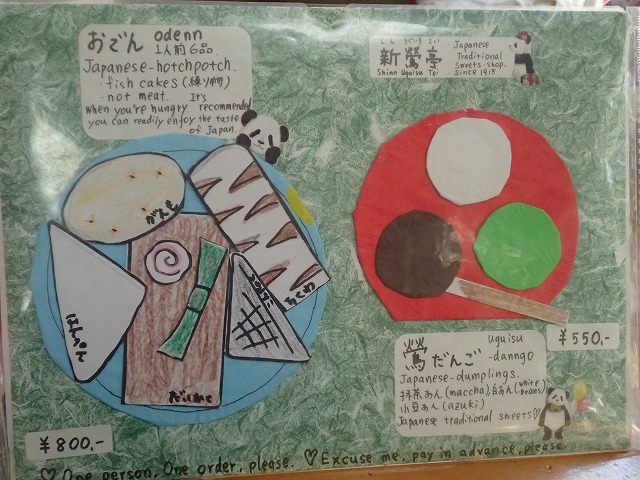 おでん odenn
1人前6品
Japanese-hotchpotch.
・fish cakes (練り物)
・not meat. It's
When you're hungry. recommended
you can readily enjoy the taste
of Japan.
しん うぐいす てい
新鶯亭
Shinn Uguisu Tei
Japanese
Traditional
Sweets-shop.
Since 1915
がんも
ちくわ
はんぺん
だいこん
¥800,-
¥550,-
鶯だんご Uguisu
-danngo
Japanese-dumplings.
抹茶あん(maccha),白あん(white beans)
小豆あん(azuki)
Japanese traditional sweets♡
♡One person, One order, please. ♡Excuse me, pay in advance, please.